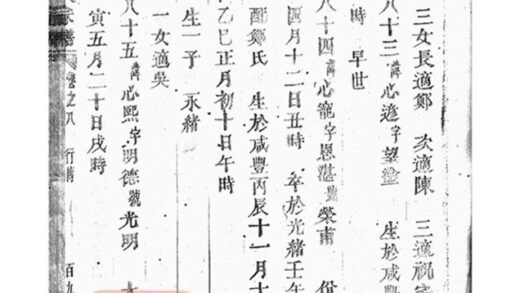 三女長適鄭 次適陳 三適祝
八十三 諱心遠字望瀛 生於咸豐
時 早世
八十四 諱心寵字恩湛號榮甫
四月十二日丑時 卒於光緒壬午
配鄭氏 生於咸豐丙辰十一月十
乙巳正月初十日午時
生一子 永緒
一女適吳
八十五 諱心熙字明德號光明
寅五月二十日戌時
卷之八 行傳 百九